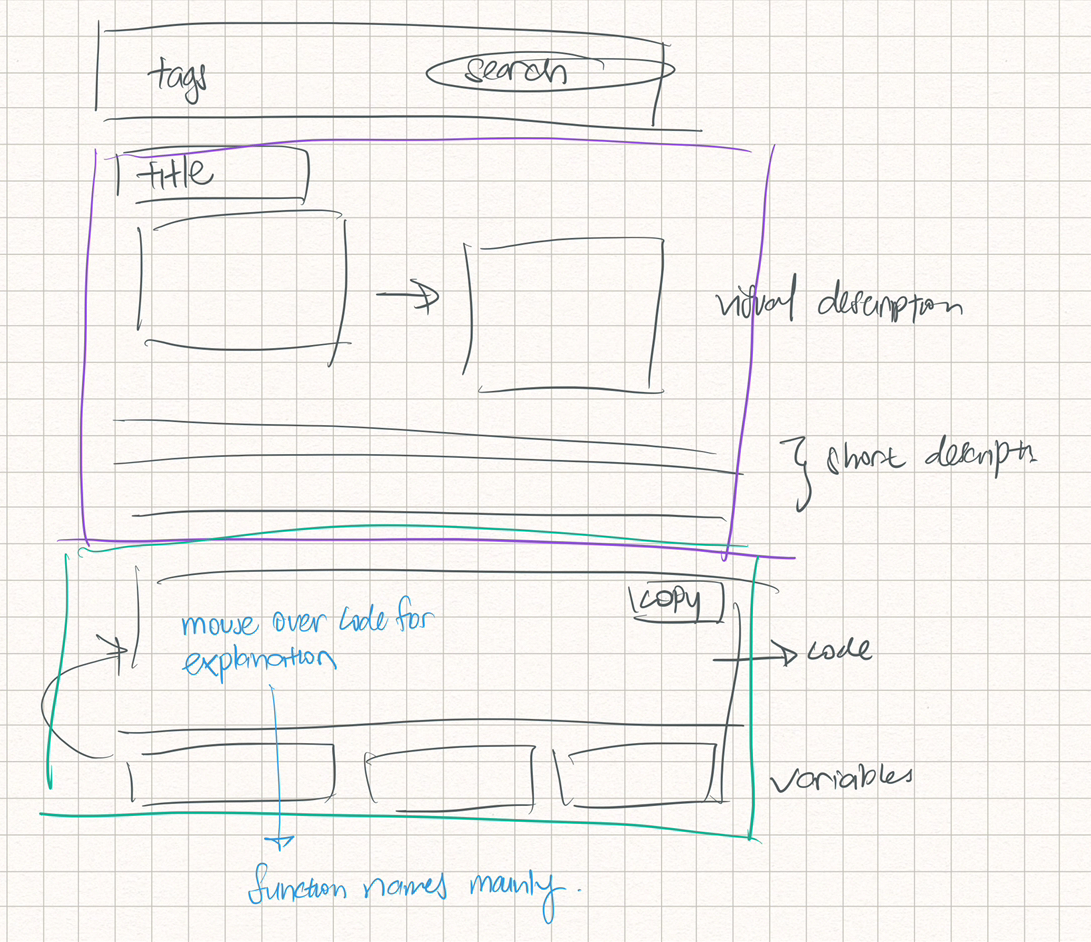 tags
search
title
visual description
short descriptn
copy
mouse over code for
explanation
code
variables
function names mainly.